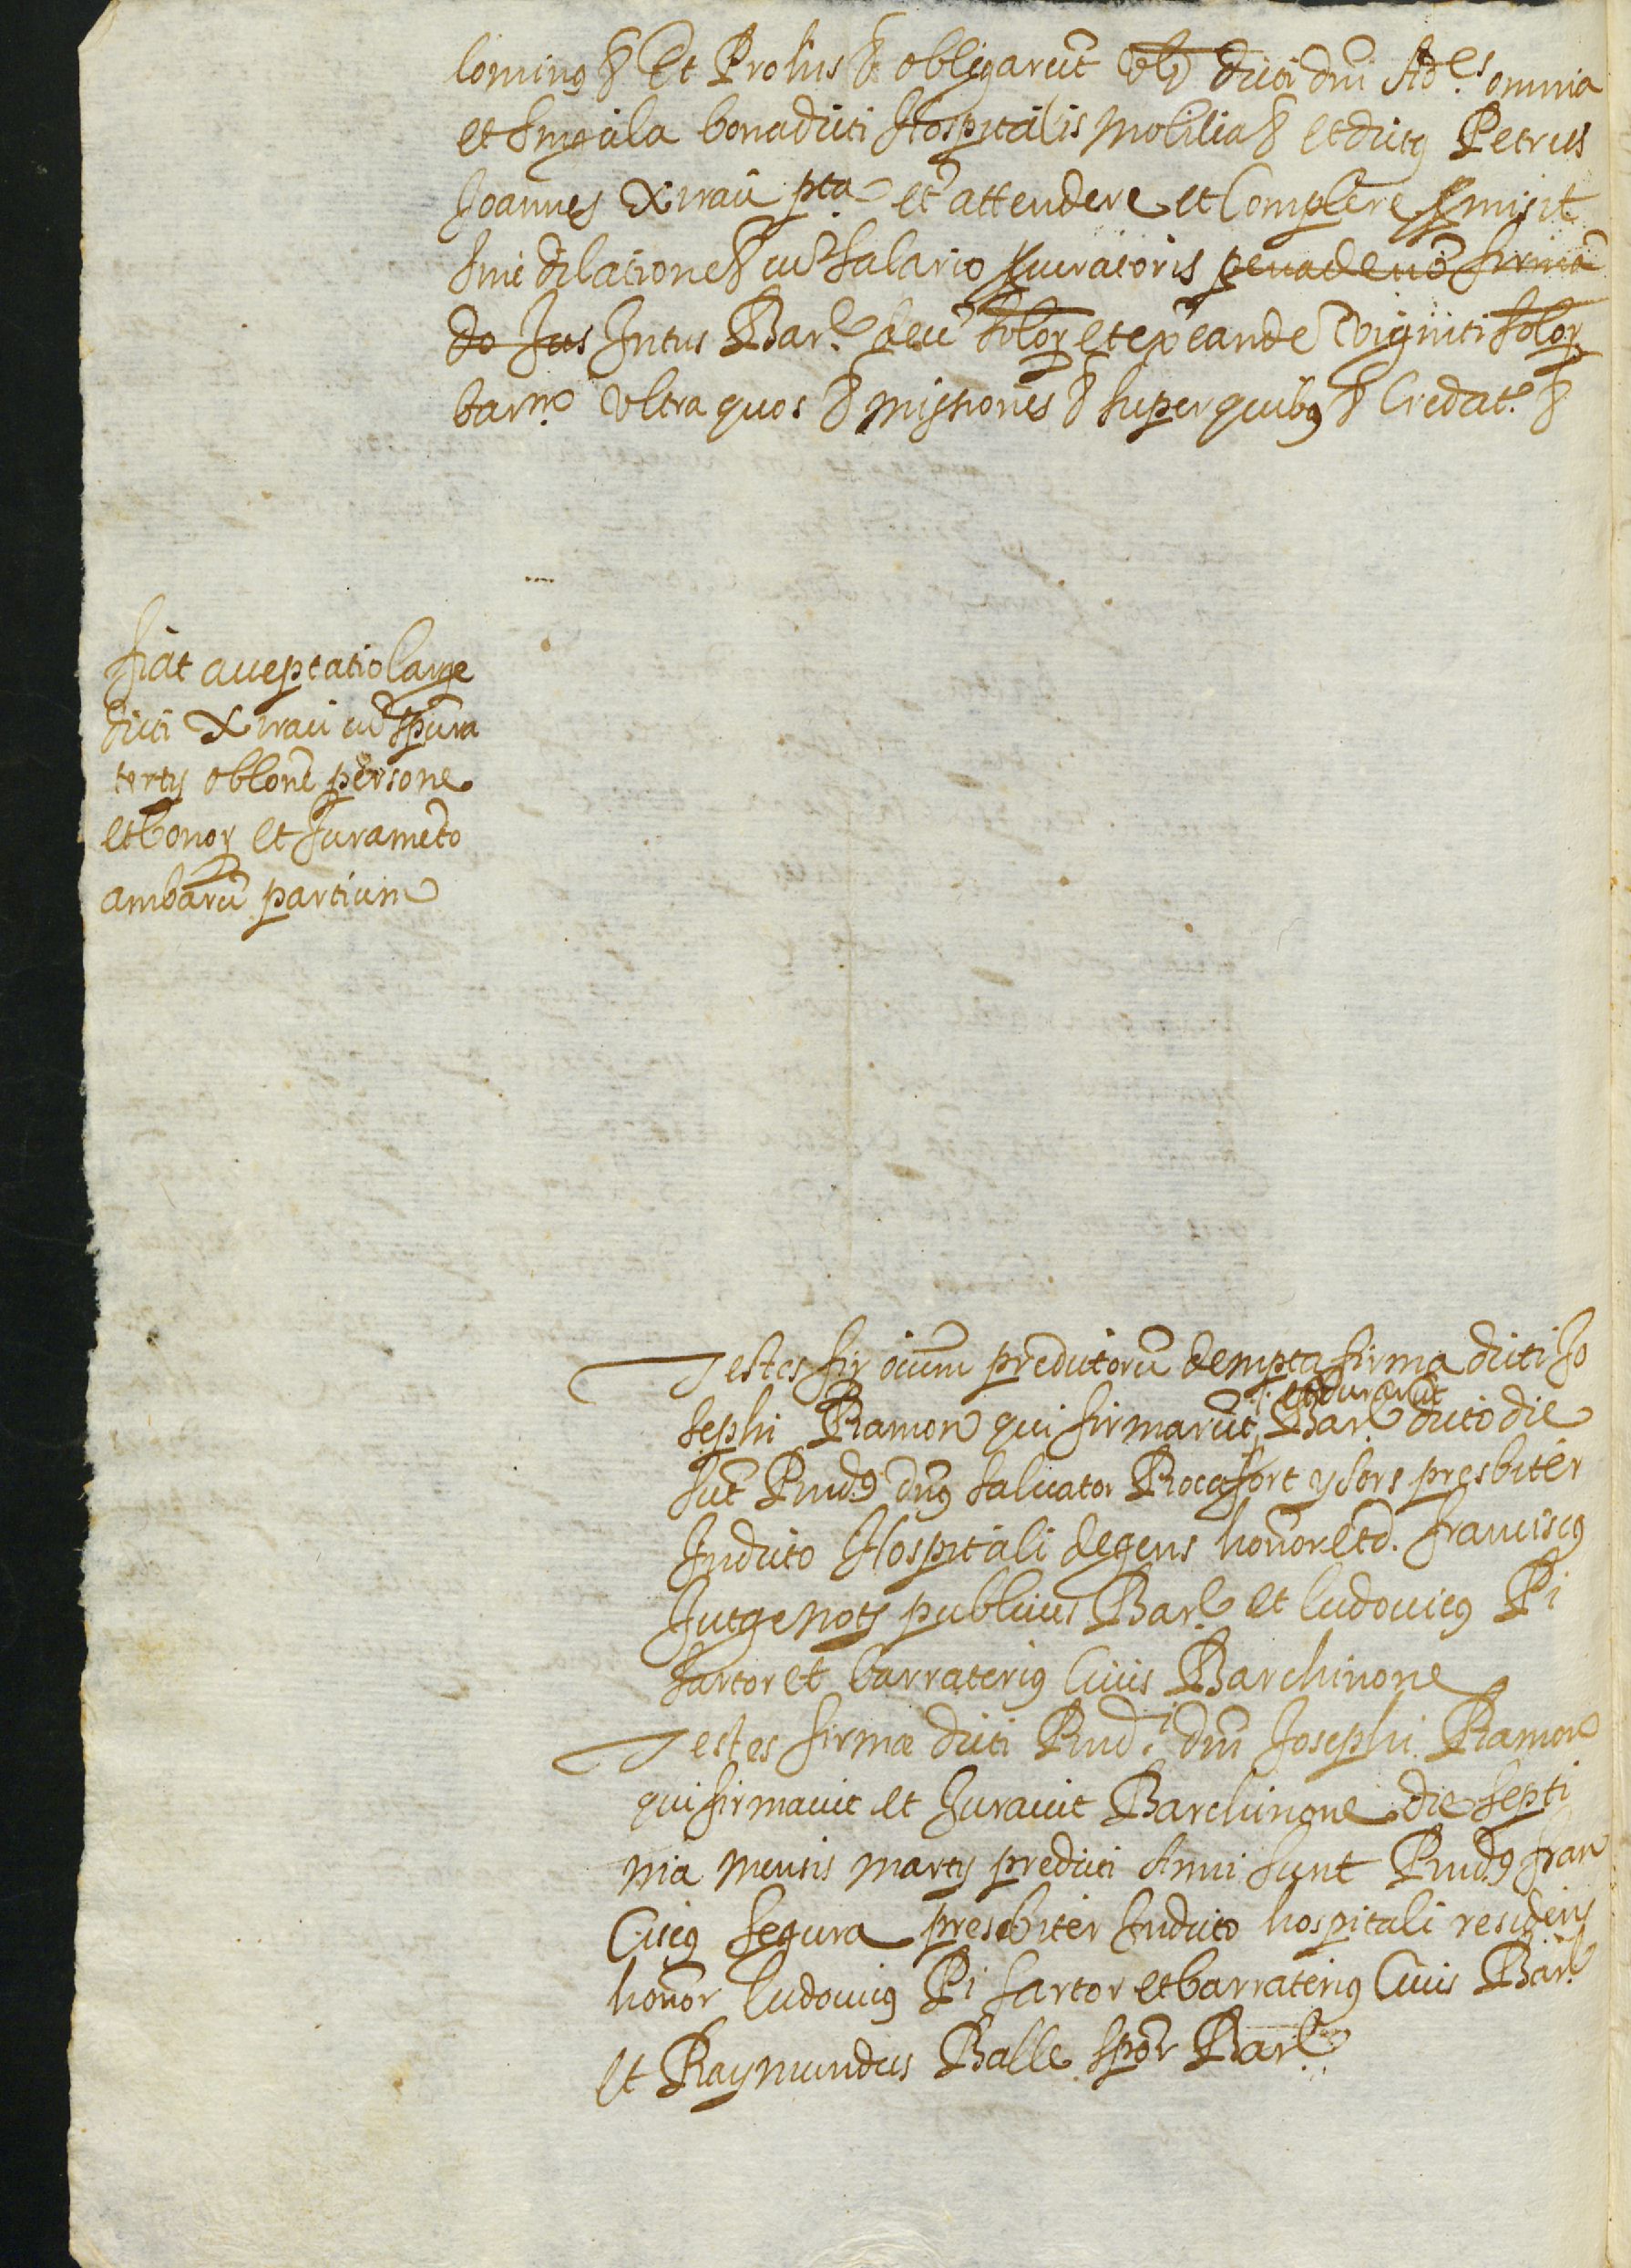 lominus & Et Pro his & obligarũt dicti dñi Ad.es omnia
et singula bona dicti Hospitalis mobilia & et dictus Petrus
Joannes Xirau pta. et attendere et Complere promisit
sine dilatione & cũ salario procuratoris pena de non firmã
do Jus Intus Bar.e decẽ solor et extra eande Viginti solor
barne. Ultra quos & missiones & super quibus & Credat.r &
fiat acceptatio large
dicti Xirau cũ scriptura
tertij oblone persone
et bonor et Juramẽto
ambarũ partium
Testes fir oium predictorũ dempta firma dicti Jo
sephi Ramon qui firmarũt et Jurarũt Bar.e dicto die
sũt Rnd.us dñus Saluator Rocafort y sors presbiter
In dicto Hospitali degens honor et d. Franciscus
Jutge nots publicus Bar.e et Ludouicus Pi
sartor et barraterius Ciuis Barchinone
Testes firmæ dicti Rnd.i dñi Josephi Ramon
qui firmauit et Jurauit Barchinone die septi
ma mensis martij predicti Anni sunt Rnd.us fran
Ciscus Segura presbiter In dicto hospitali residens
honor Ludouicus Pi sartor et barraterius Ciuis Bar.e
et Raymundus Balle scpor Bar.e